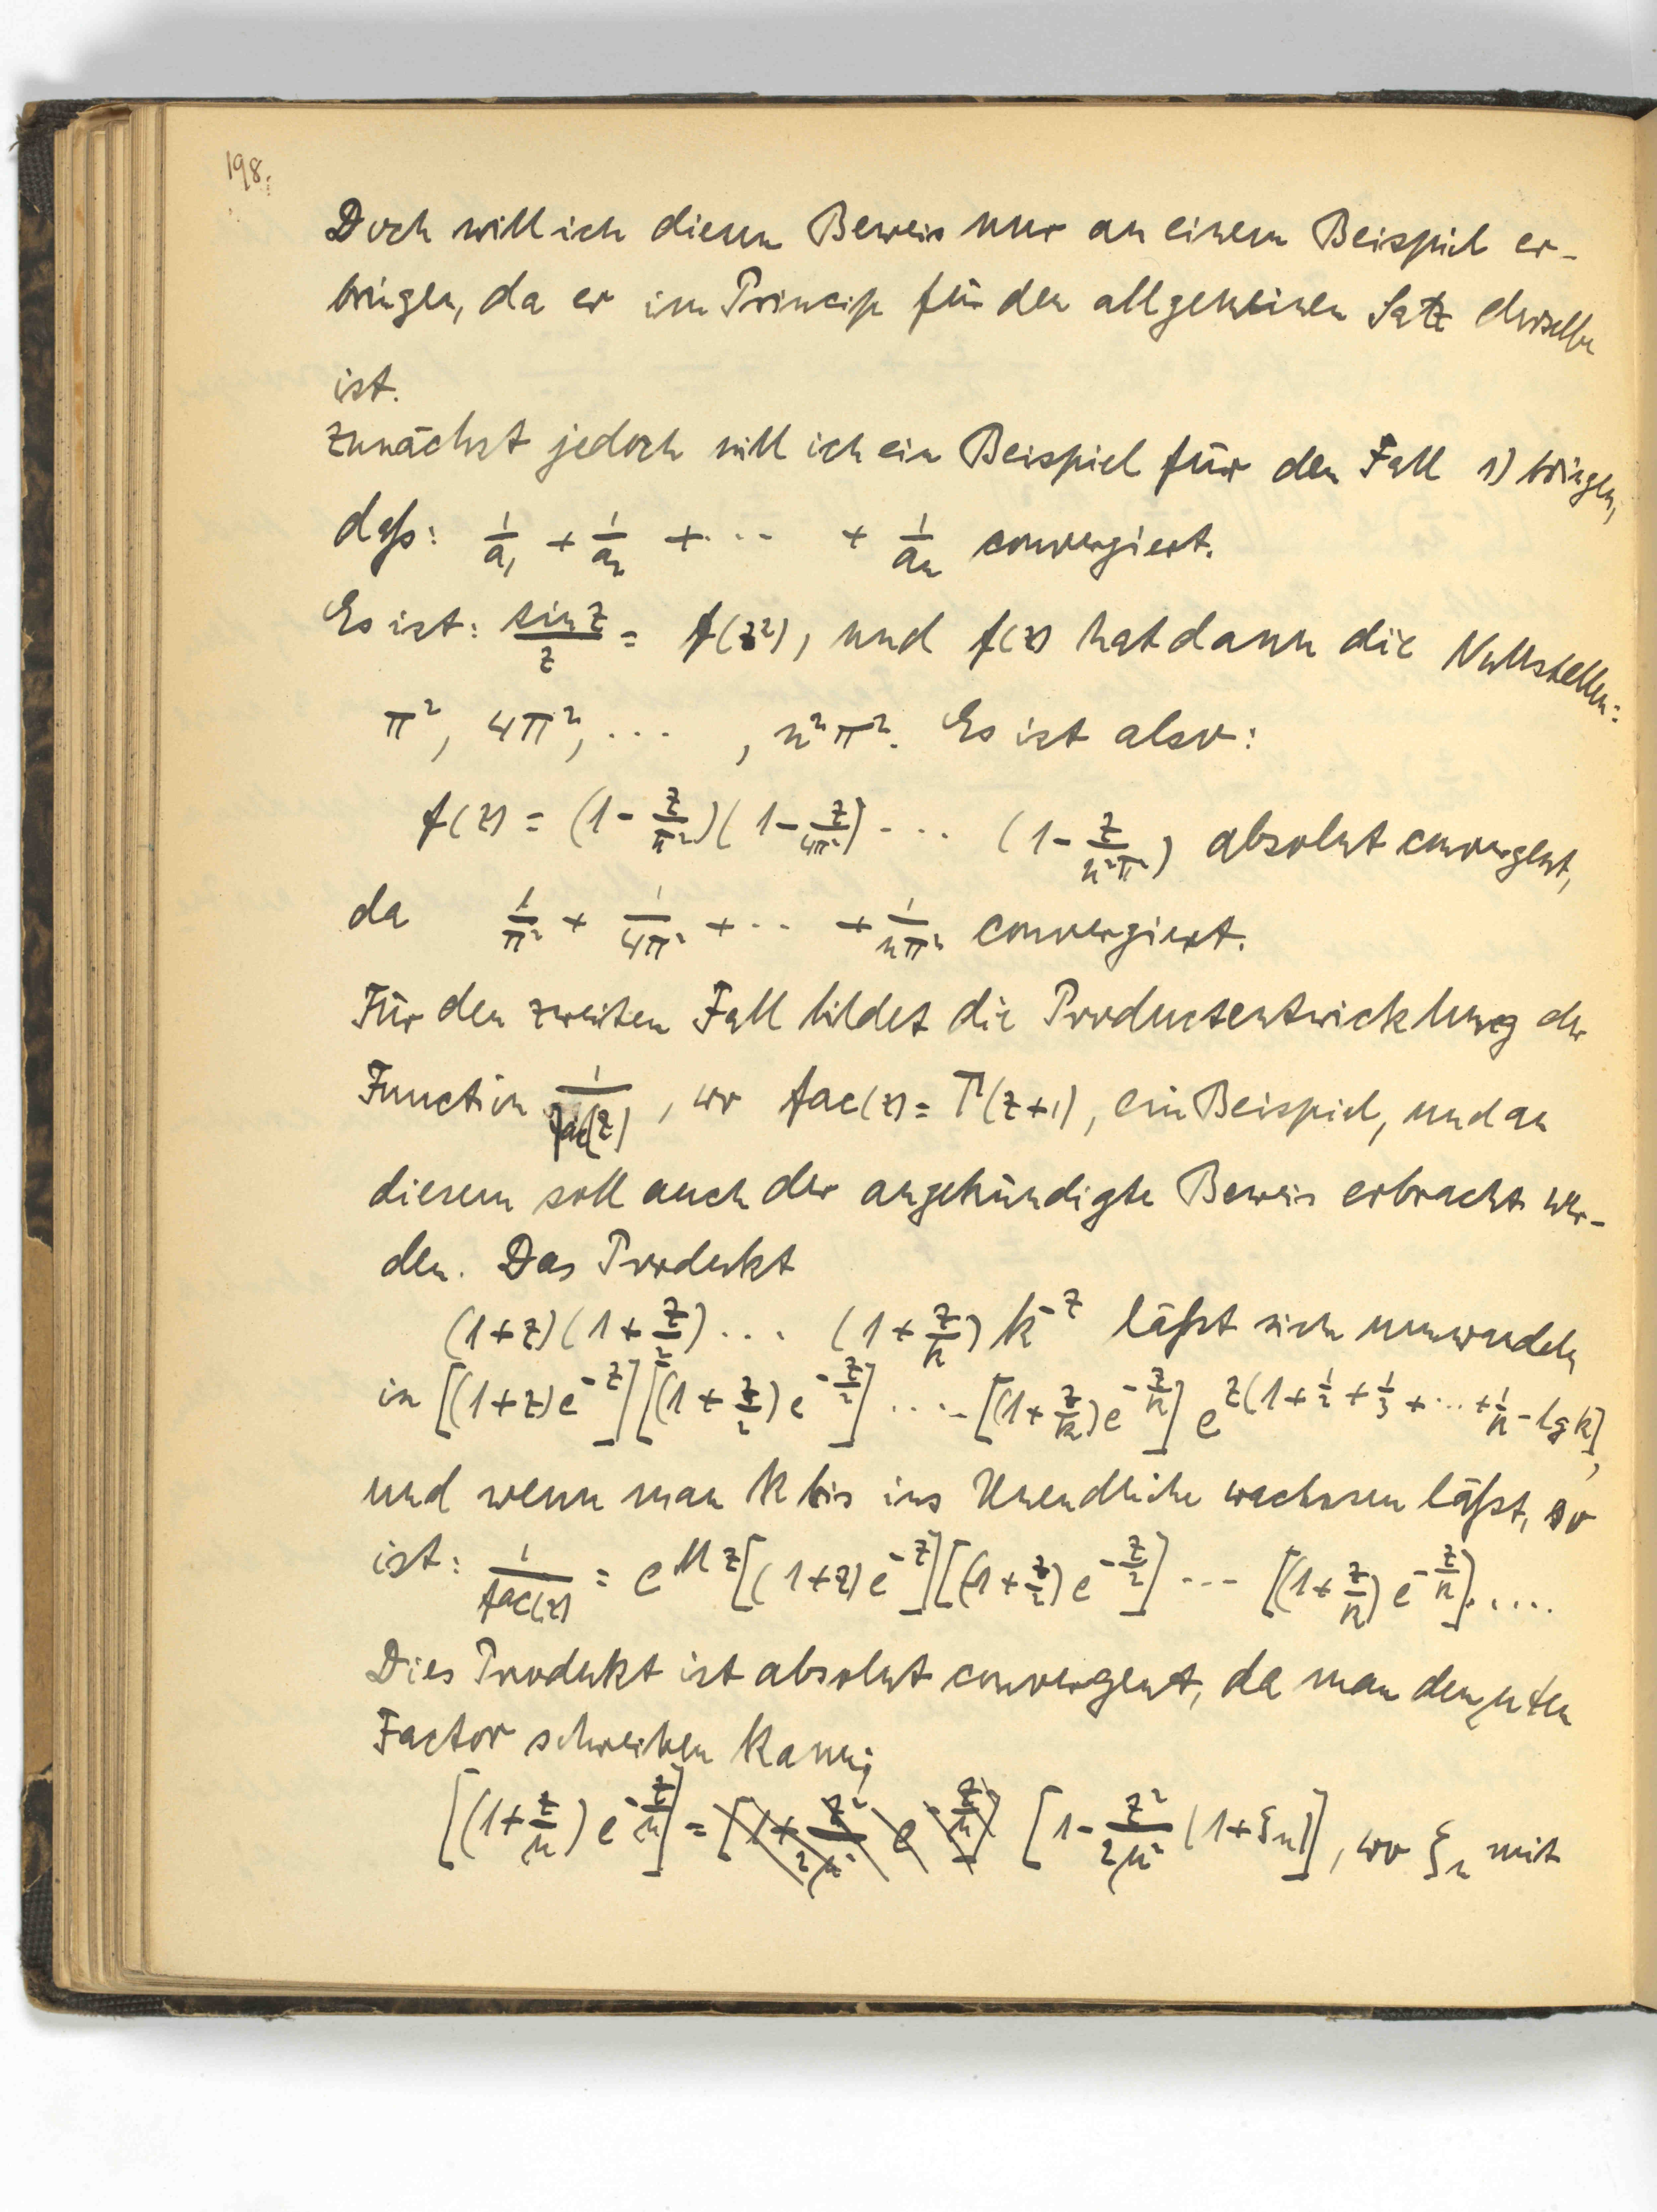 198.
Doch will ich diesen Beweis nur an einem Beispiel er-
bringen, da er im Princip für den allgemeinen Satz derselbe
ist.
Zunächst jedoch will ich ein Beispiel für den Fall 1) bringen,
daß: 1/a₁ + 1/a₂ + ··· + 1/aₙ convergiert.
Es ist: sin z/z = f(z²), und f(z) hat dann die Nullstellen:
π², 4π², ··· , n²π². Es ist also:
f(z) = (1 - z/π²)(1 - z/4π²) ··· (1 - z/n²π²) absolut convergent,
da 1/π² + 1/4π² + ··· + 1/nπ² convergiert.
Für den zweiten Fall bildet die Productentwicklung der
Function 1/fac(z), wo fac(z) = Γ(z+1), ein Beispiel, und an
diesem soll auch der angekündigte Beweis erbracht wer-
den. Das Produkt
(1+z)(1+z/2) ··· (1+z/k) k^-z läßt sich umwandeln
in [(1+z)e^-z][(1+z/2)e^-z/2] ···· [(1+z/k)e^-z/k] e^z(1+1/2+1/3+···+1/k-lg k],
und wenn man k bis ins Unendliche wachsen läßt, so
ist: 1/fac(z) = e^Mz[(1+z)e^-z][(1+z/2)e^-z/2] ··· [(1+z/k)e^-z/k]·····
Dies Produkt ist absolut convergent, da man den μten
Factor schreiben kann:
[(1+z/μ)e^-z/μ] = [1+z²/2μ² e^-z/μ] [1-z²/2μ²(1+ξμ)], wo ξμ mit